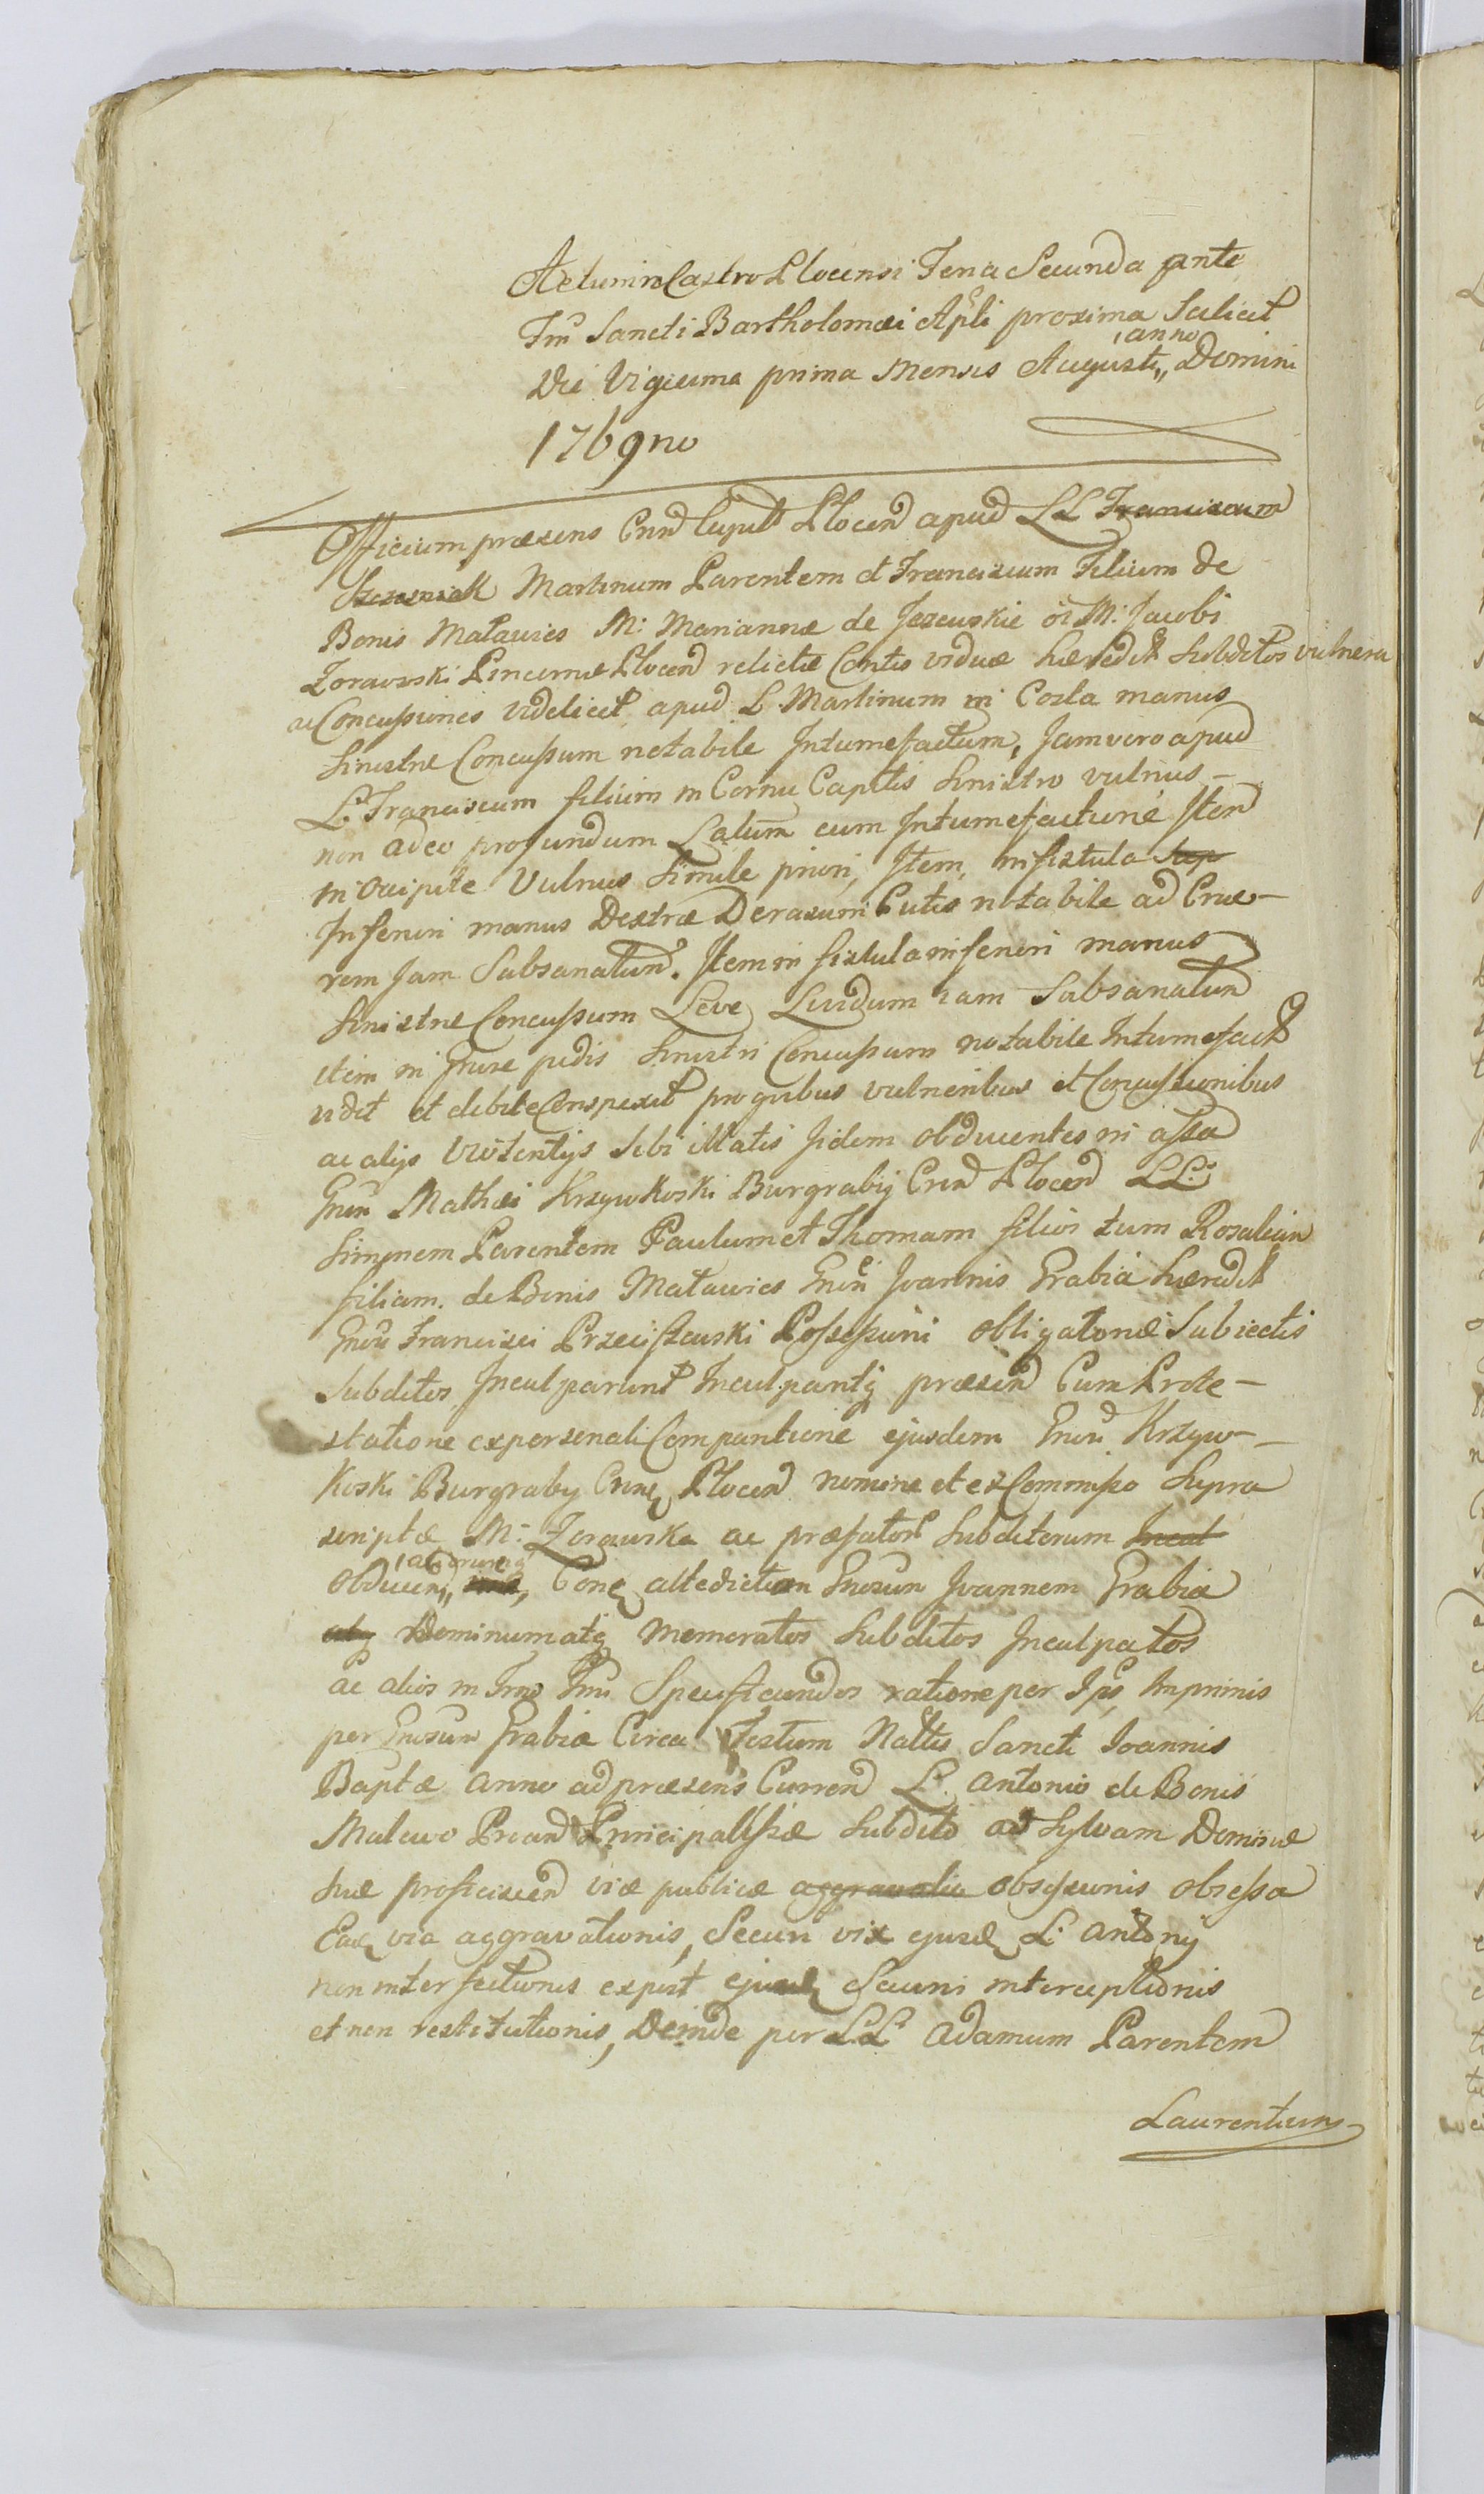 Actum in Castro Plocensi Feria Secunda ante
Fm Sancti Bartholomæi Apli proxima Scilicet
Die Vigesima prima Mensis Augusti,, anno Domini
1769no
Officium præsens Cnd Capitl Plocen apud LL Franciscum
Szczesniak Martinum Parentem et Franciscum Filium de
Bonis Maławies M: Mariannæ de Jezewskie oi M: Jacobi
Zorawski Pincernæ Plocen relictæ Contis viduæ hæredit Subditos vulnera
ac Concussiones videlicet apud L. Martinum in Costa manus
Sinistræ Concussum notabile Intumefactum, Jam vero apud
L. Franciscum filium in Cornu Capitis Sinistro vulnus
non adeo profundum Latum cum Intumefactione Item
in occipite Vulnus Simile priori, Item, in fistula Sup
Inferiori manus Dextræ Derasum Cutis notabile ad Cruo-
rem Jam Subsanatum. Item in fistula inferiori manus
Sinistræ Concussum Leve Lividum iam Subsanatum
item in Crure pedis Sinistri Concussum notabile Intumefact
vidit et debite Conspexit pro quibus vulneribus et Concussionibus
ac alijs violentijs Sibi illatis Jidem obducentes in assa
Gnri Mathæi Krzywkoski Burgrabij Cren Plocen LL:
Simonem Parentem Paulum et Thomam filios tum Rosaliam
filiam. de Bonis Maławies Gnri Joannis Grabia hæredit
Gnri Francisci Przeciszewski Possessioni obligatoriæ Subiectis
Subditos Inculparunt Inculpantq præsen Cum Prote-
statione ex personali Comparitione ejusdem Gnri Krzyw-
koski Burgraby Crene Plocen nomine et ex Commisso Supra
scriptæ M: Zorawska ac præfator Subditorum Incul
obducen,, Cone attedictum Gnosum Joannem Grabia
atq Dominum atq memoratos Subditos Inculpatos
ac alios in Trno Pmi Specificandos ratione per Ipos Imprimis
per Gnosum Grabia Circa Festum Natlis Sancti Joannis
Baptæ anno ad præsens Curren L. Antonio de Bonis
Malewo Pnciand Principalissæ Subdito ad Sylvam Dominæ
Suæ proficiscen viæ publicæ aggravatio obsessionis obsessa
Eaq via aggravationis, Securi vix ejusd L: Antonij
non interfectionis expist ejusd Securis interceptionis
et non restitutionis, Deinde per LL Adamum Parentem
Laurentium